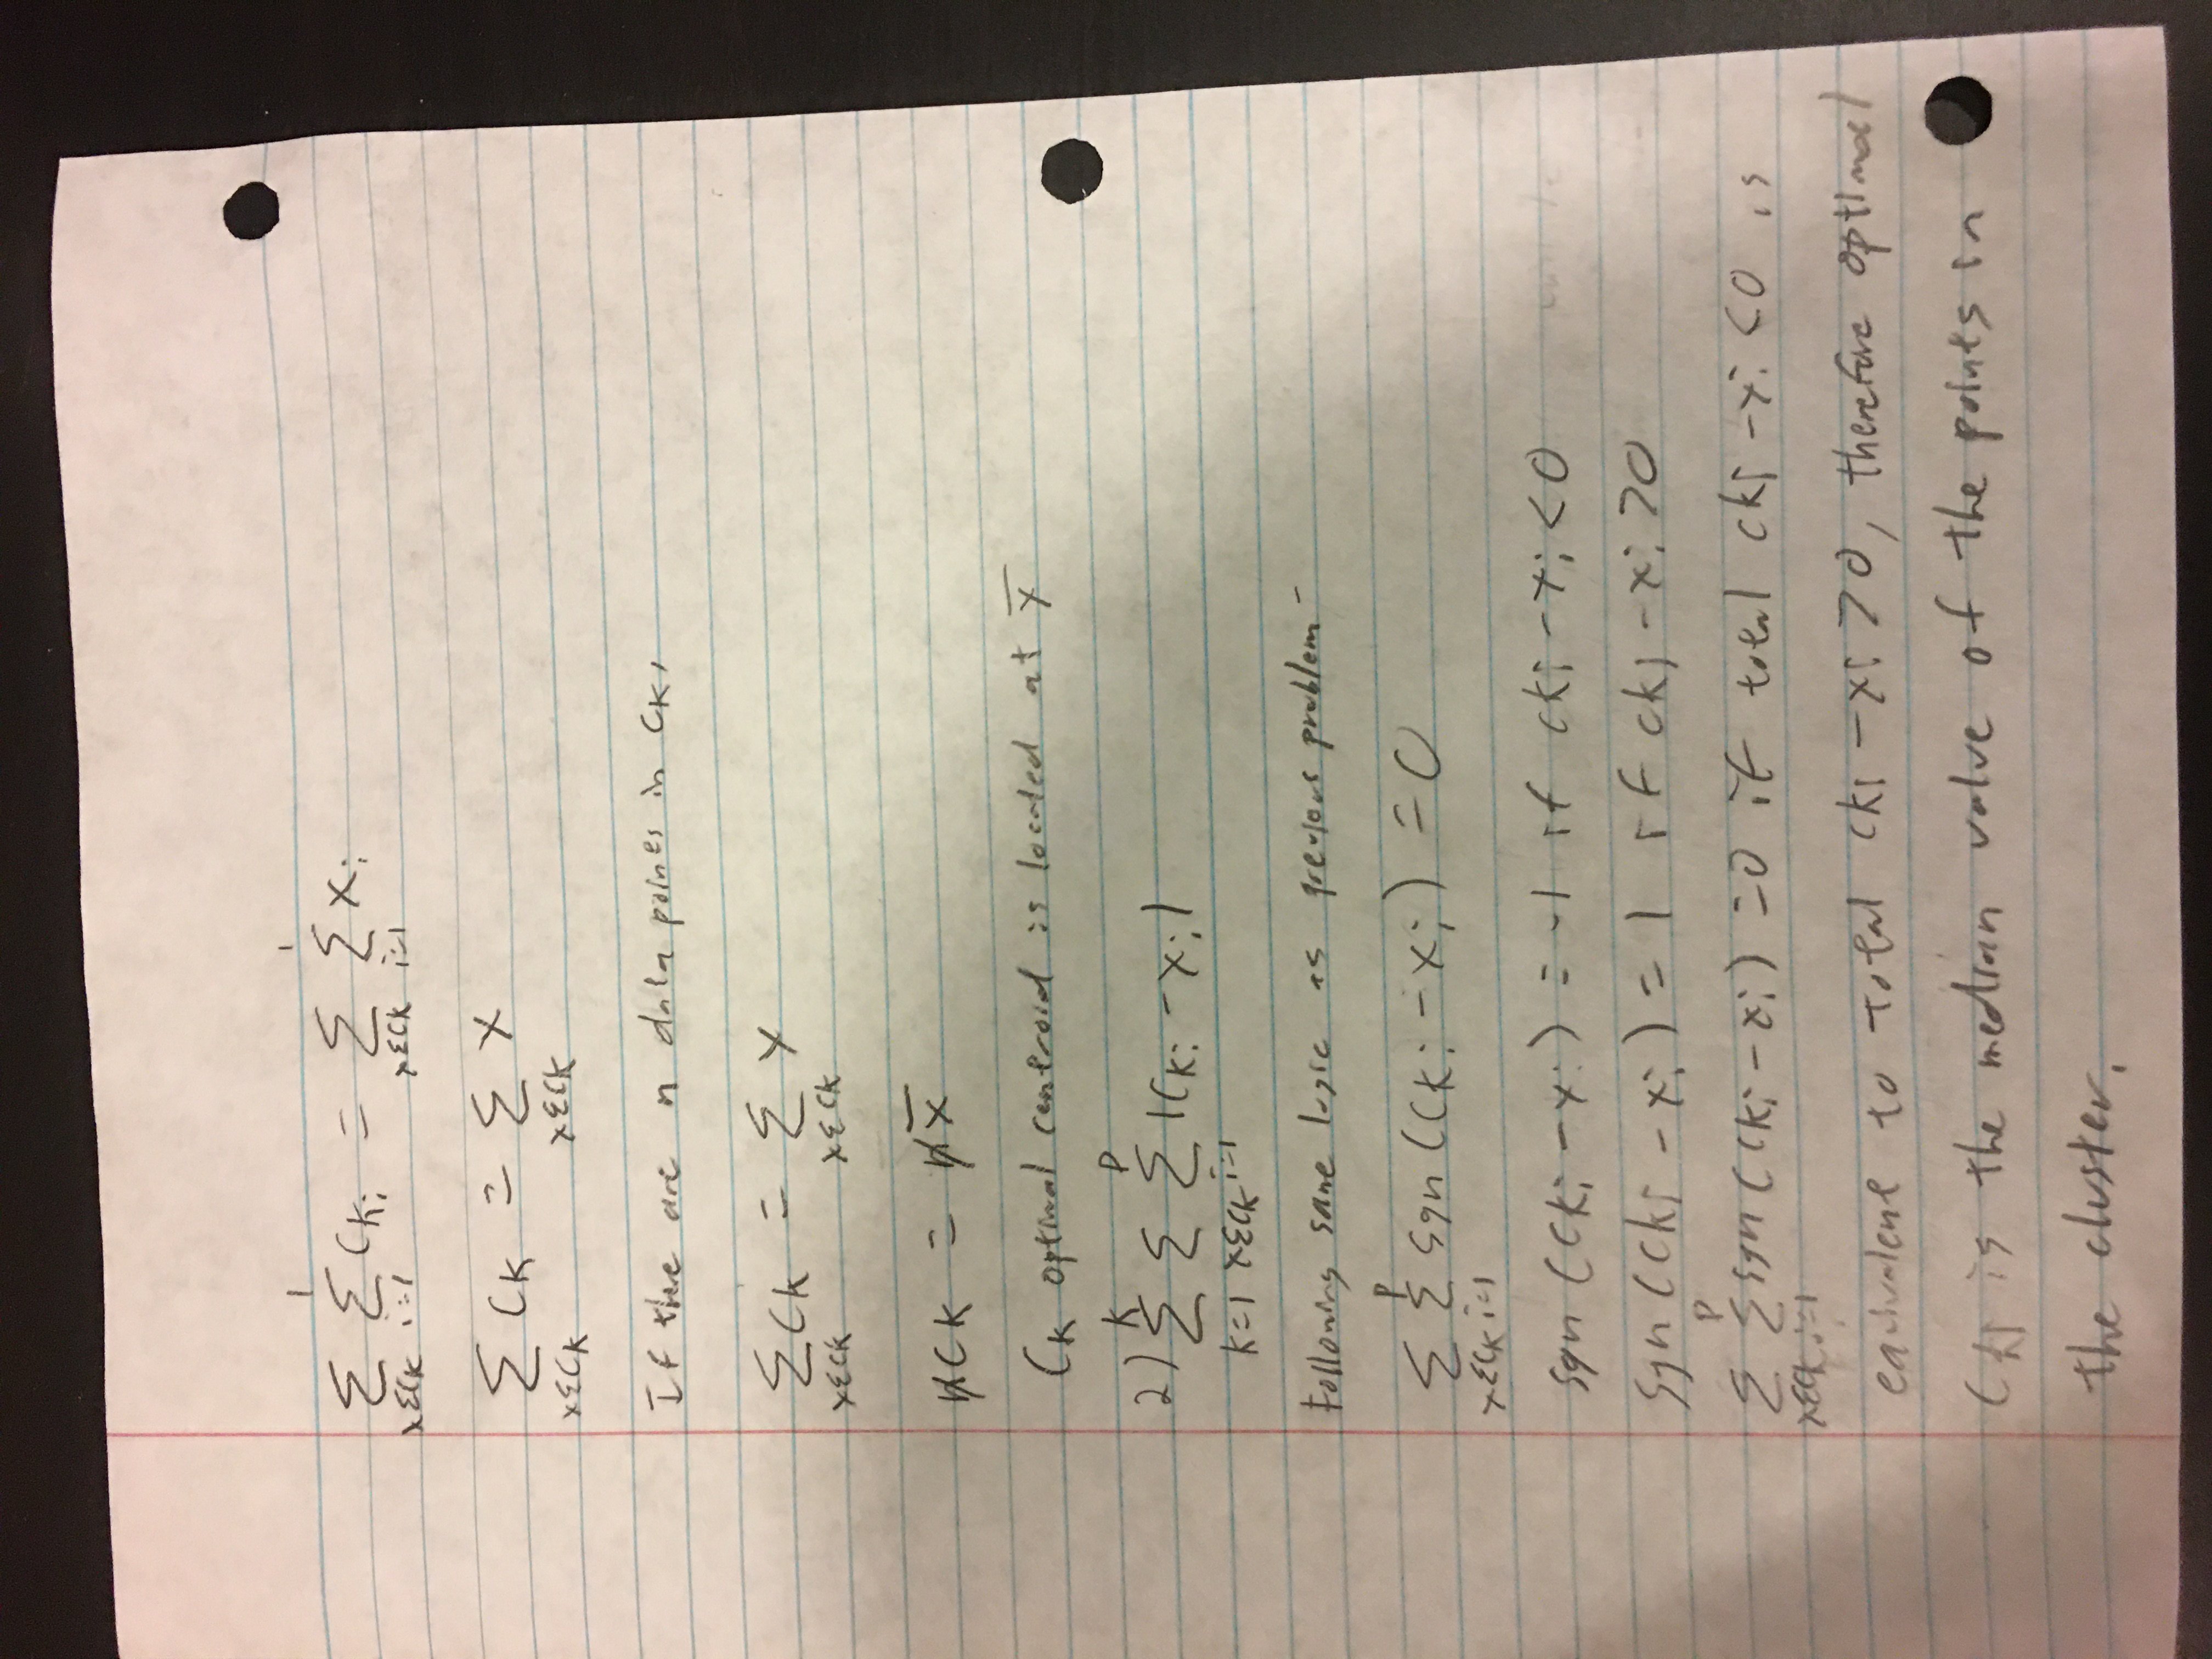 1 1
Σ Σ Cki = Σ Σ xi
x∈Ck i=1 x∈Ck i=1
Σ Ck = Σ x
x∈Ck x∈Ck
If there are n data points in Ck,
Σ Ck = Σ x
x∈Ck x∈Ck
nCk = nx̄
Ck optimal centroid is located at x̄
K P
2) Σ Σ Σ |Cki - xi|
k=1 x∈Ck i=1
Following same logic as previous problem -
P
Σ Σ sgn (Cki - xi) = 0
x∈Ck i=1
sgn (Cki - xi) = -1 if cki - xi < 0
sgn (cki - xi) = 1 if cki - xi > 0
P
Σ Σ sgn (Cki - xi) = 0 if total cki - xi < 0 is
x∈Ck i=1
equivalent to total cki - xi > 0, therefore optimal
Cki is the median value of the points in
the cluster.